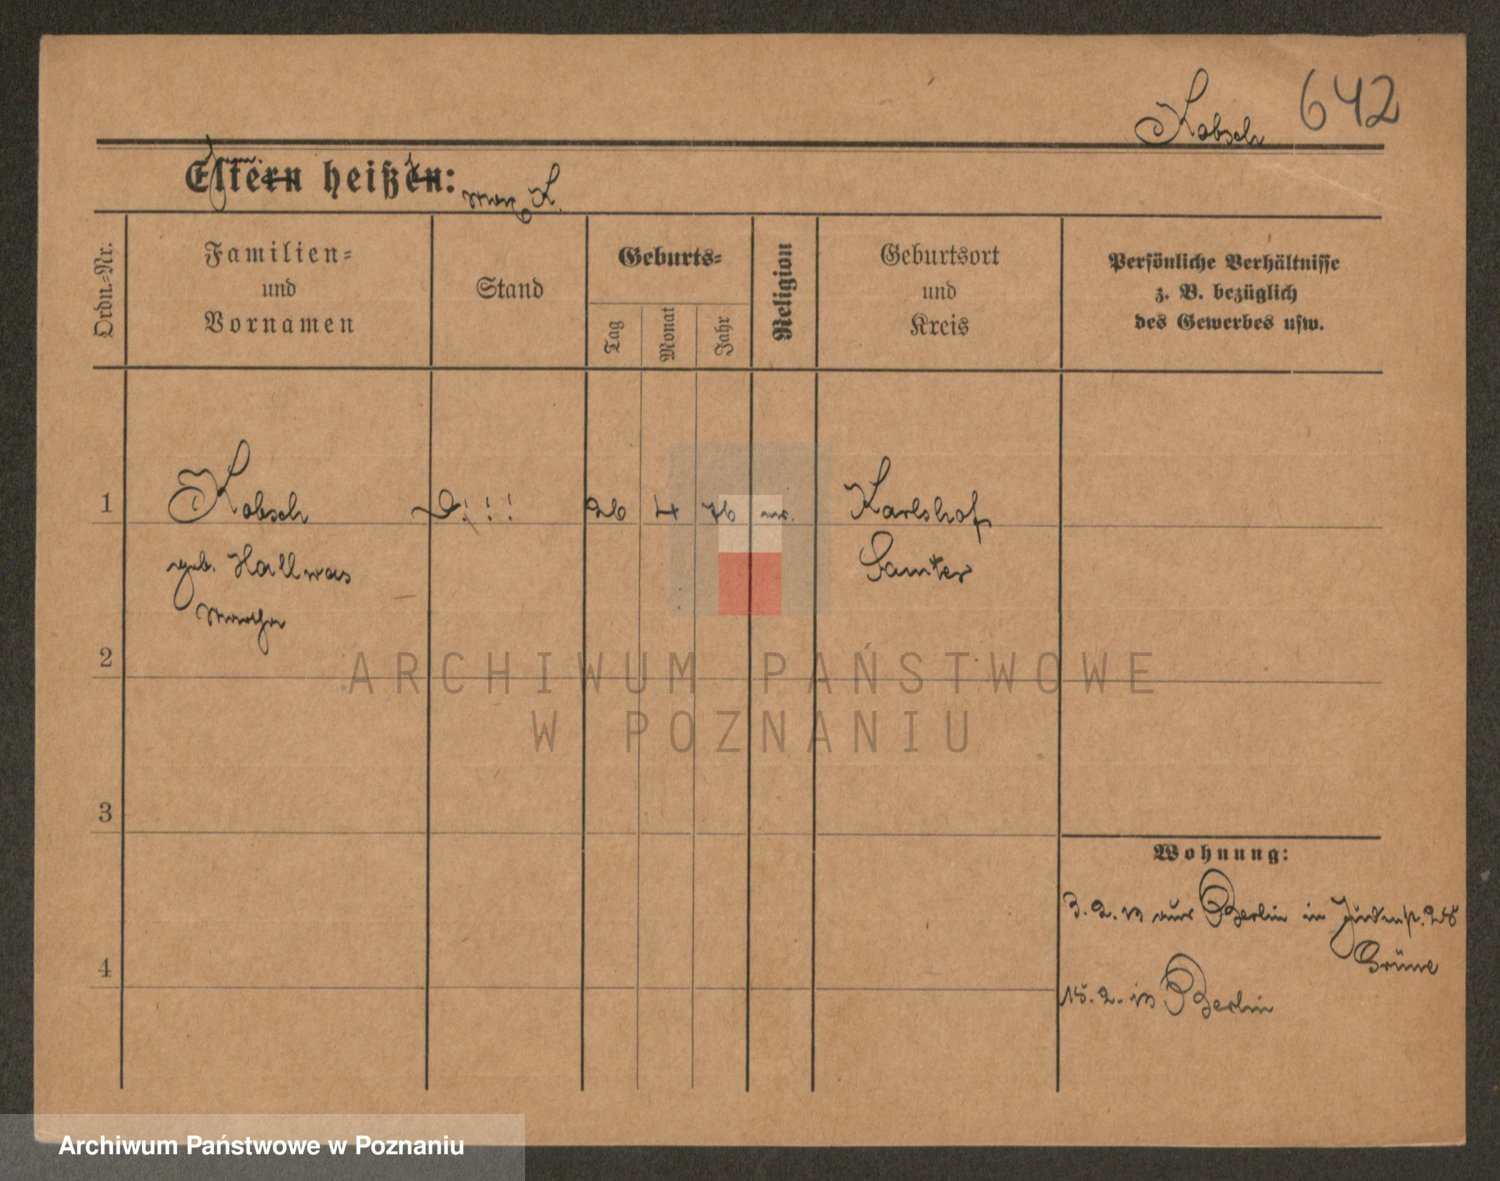 Kobsch 642
Eltern heißen:
Familien-
und
Vornamen
Ordn.-Nr.
Stand
Geburts-
Tag
Monat
Jahr
Religion
Geburtsort
und
Kreis
Persönliche Verhältnisse
z. B. bezüglich
des Gewerbes usw.
1 Kobsch 26 4 76 Karlshof
geb. Hallwas Samter
Martha
2
3
4
Wohnung:
3.2. aus Berlin in 28
Grüne
15.2. in Berlin
ARCHIWUM PAŃSTWOWE
W POZNANIU
Archiwum Państwowe w Poznaniu